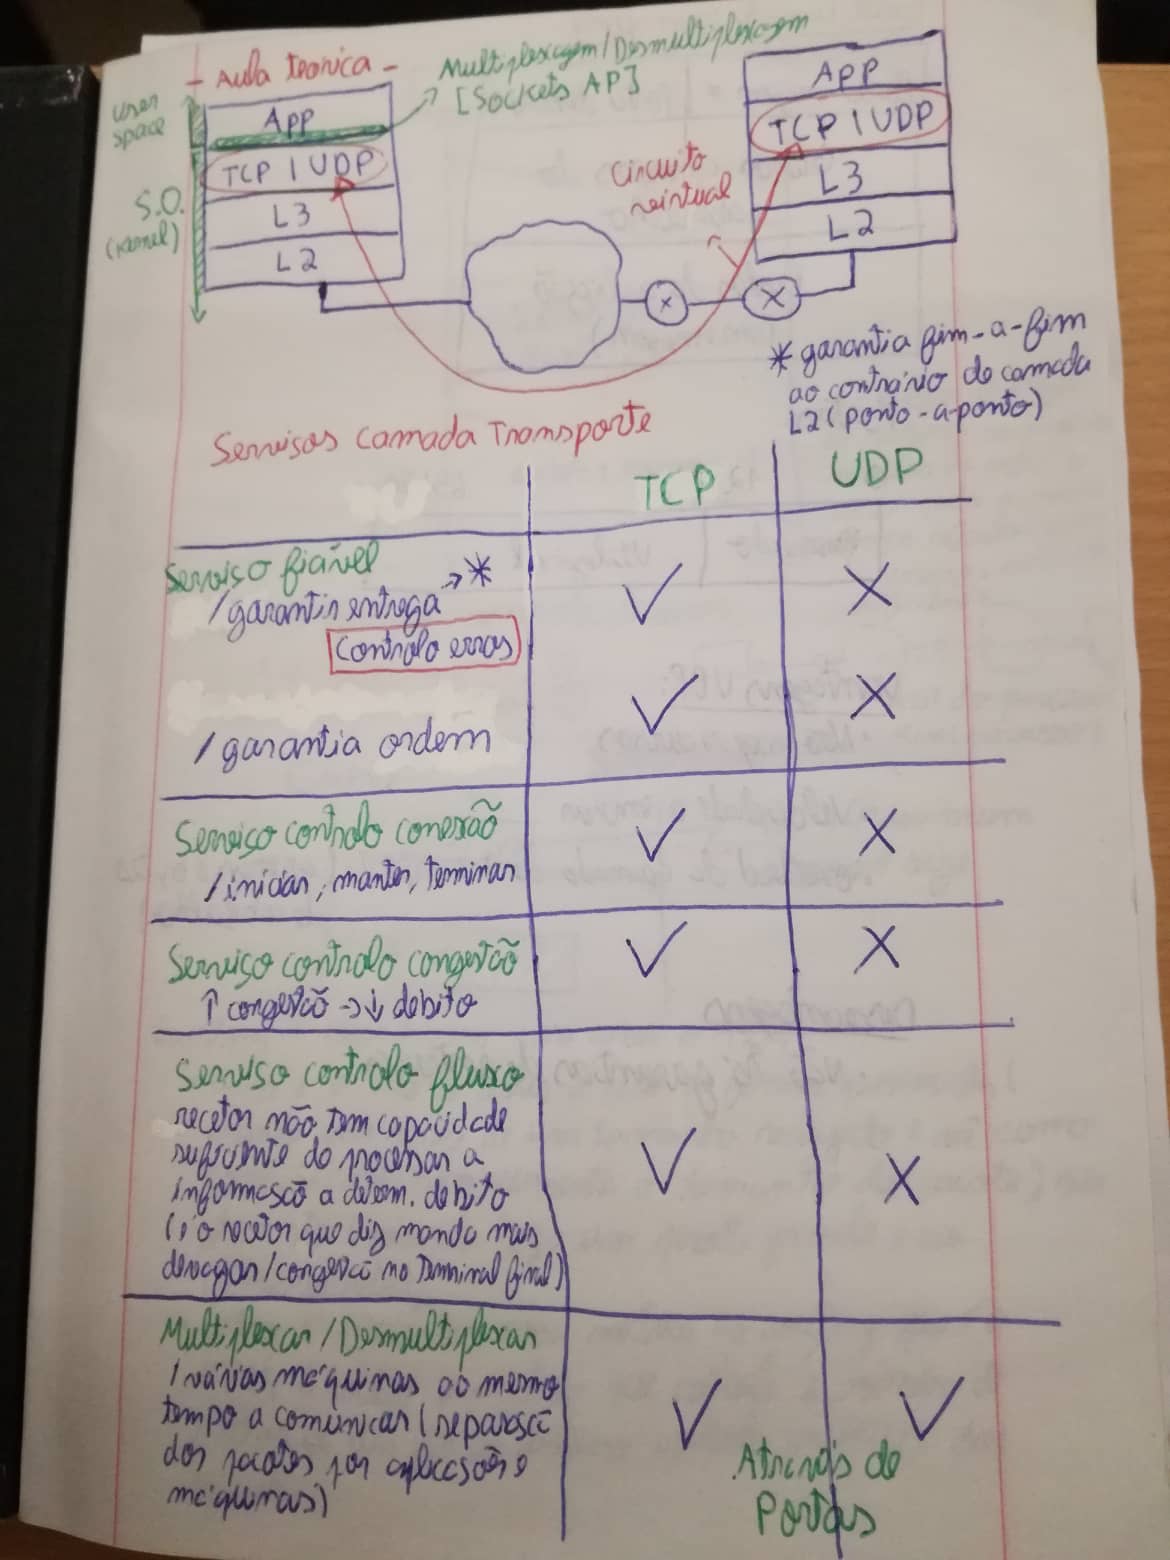 - Aula teorica -
Multiplexagem/Desmultiplexagem
[Sockets AP]
user
space
S.O.
(kernel)
App
TCP | UDP
L3
L2
App
TCP | UDP
L3
L2
Circuito
X
X
* garantia fim-a-fim
ao contrário de camada
L2 (ponto-a-ponto)
Serviços Camada Transporte
TCP
UDP
Serviço fiável
/garantir entrega → *
Controlo erros
✓
X
/garantia ordem
✓
X
Serviço controlo conexão
/iniciar, manter, terminar
✓
X
Serviço controlo congestão
↑ congestão → ↓ debito
✓
X
Serviço controlo fluxo
recetor não tem capacidade
suficiente de processar a
informação a determ. debito
o recetor que diz manda mais
devagar/congestã no Terminal final)
✓
X
Multiplexar/Desmultiplexar
/várias máquinas ao mesmo
tempo a comunicar (separaçã
dos pacotes por aplicações e
máquinas)
✓
✓
Através de
Portas